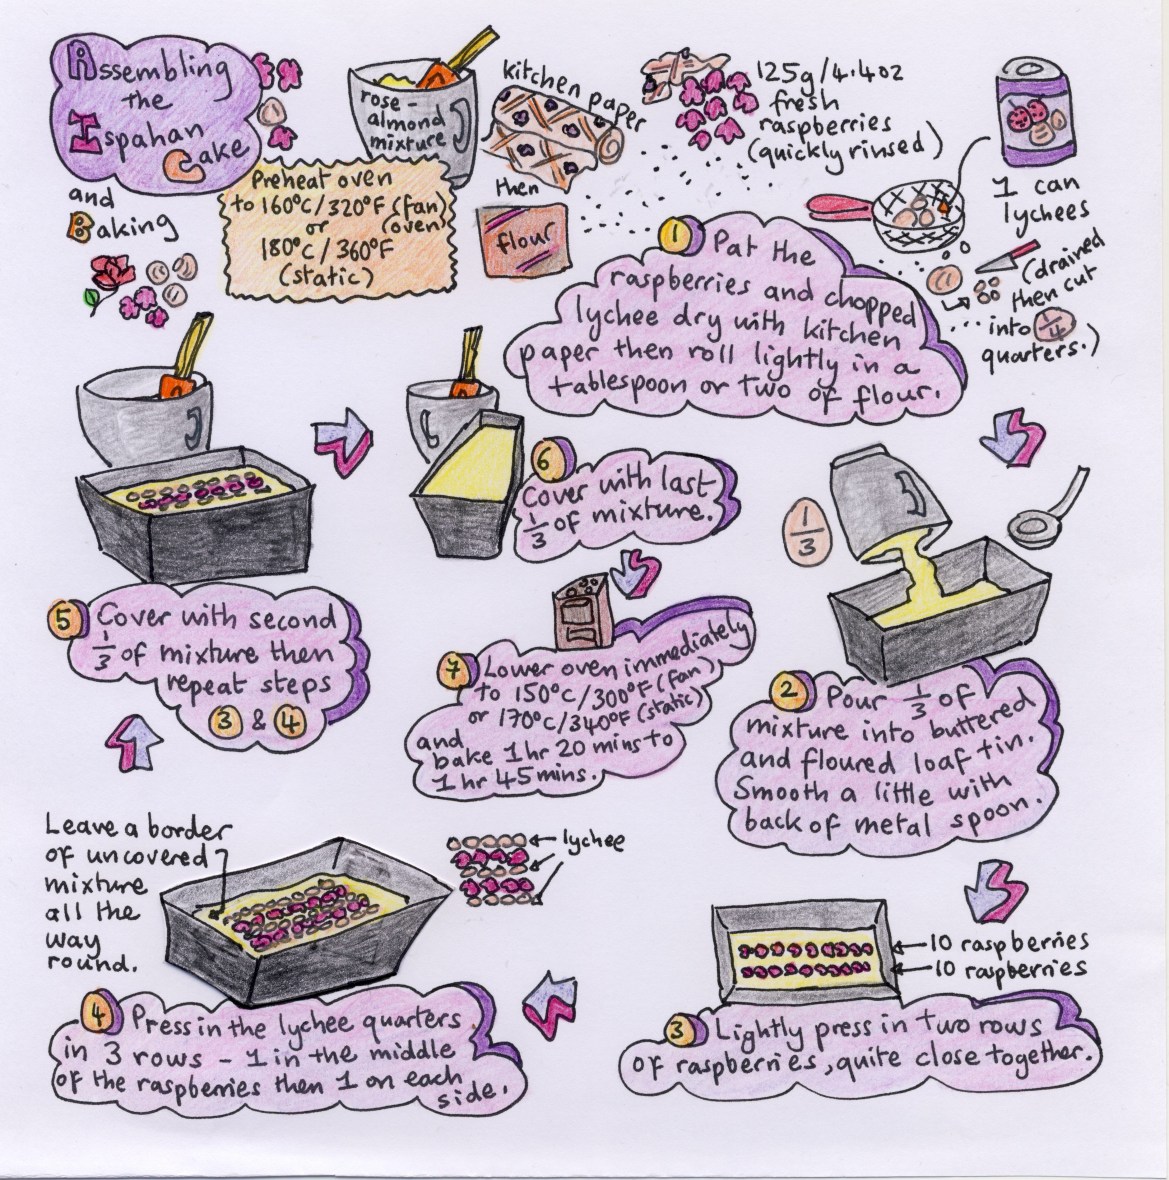 Assembling
the
Ispahan
Cake
and
Baking
Preheat oven
to 160°C/320°F (fan)
or (oven)
180°C/360°F
(static)
rose-
almond
mixture
kitchen paper
then
flour
125g/4.4oz
fresh
raspberries
(quickly rinsed)
1 can
lychees
(drained
then cut
... into 1/4
quarters.)
1 Pat the
raspberries and chopped
lychee dry with kitchen
paper then roll lightly in a
tablespoon or two of flour.
1/3
2 Pour 1/3 of
mixture into buttered
and floured loaf tin.
Smooth a little with
back of metal spoon.
10 raspberries
10 raspberries
3 Lightly press in two rows
of raspberries, quite close together.
Leave a border
of uncovered
mixture
all the
way
round.
lychee
4 Press in the lychee quarters
in 3 rows - 1 in the middle
of the raspberries then 1 on each
side.
5 Cover with second
1/3 of mixture then
repeat steps
3 & 4
6 Cover with last
1/3 of mixture.
7 Lower oven immediately
to 150°C/300°F (fan)
or 170°C/340°F (static)
and
bake 1 hr 20 mins to
1 hr 45 mins.